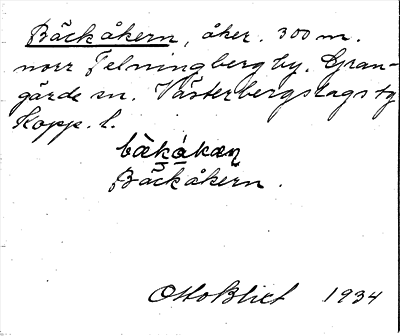 Bäckåkern, åker. 300 m.
norr Felningberg by. Gran-
gärde sn. Västerbergslags tg
Kopp. l.
Bäckåkern.
Otto Blixt 1934